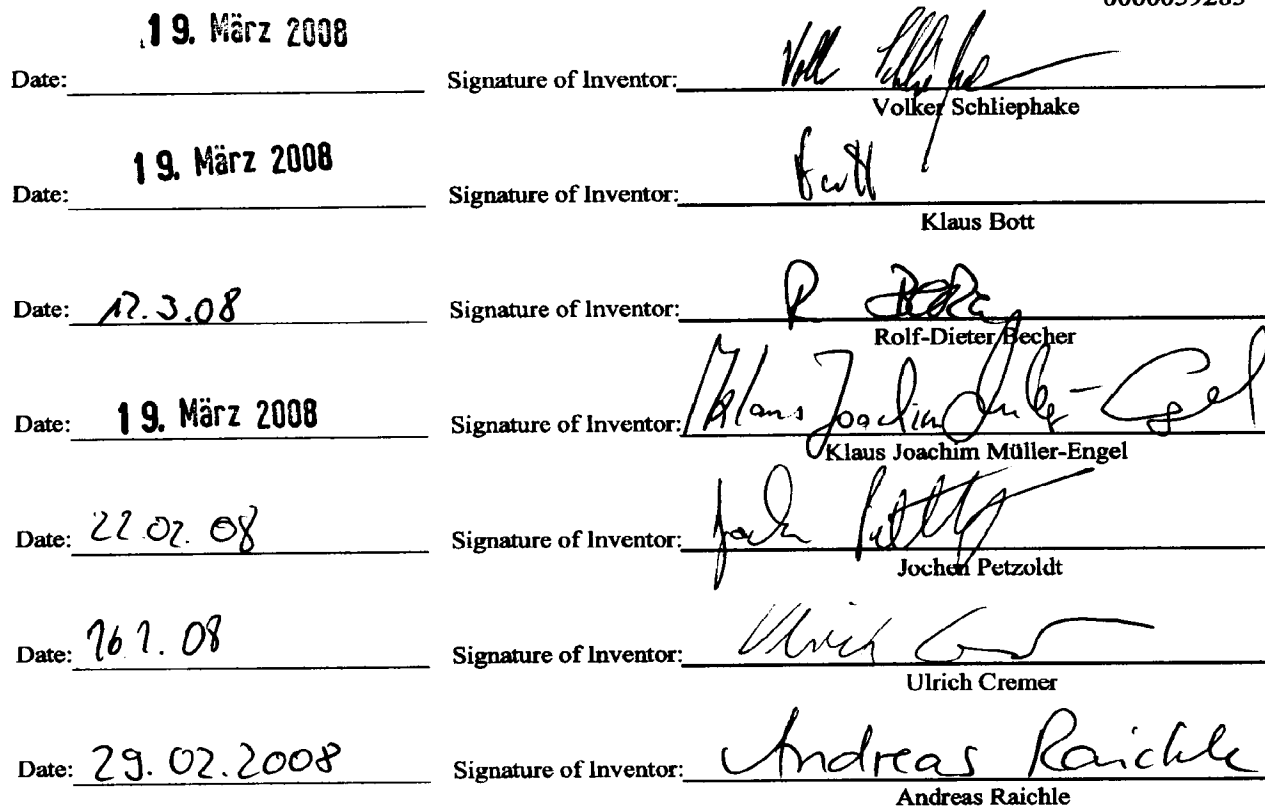 19. März 2008
Date: Signature of Inventor:
Volker Schliephake
19. März 2008
Date: Signature of Inventor: Bott
Klaus Bott
Date: 17.3.08 Signature of Inventor: R
Rolf-Dieter Becher
Date: 19. März 2008 Signature of Inventor: Klaus Joachim Müller-Engel
Klaus Joachim Müller-Engel
Date: 22.02.08 Signature of Inventor:
Jochen Petzoldt
Date: 16.1.08 Signature of Inventor: Ulrich
Ulrich Cremer
Date: 29.02.2008 Signature of Inventor: Andreas Raichle
Andreas Raichle